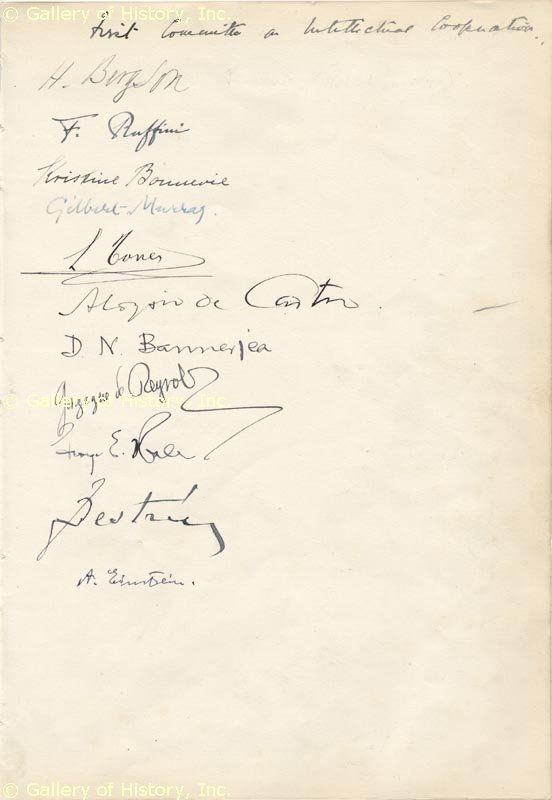 © Gallery of History, Inc.
First Committee on Intellectual Cooperation.
H. Bergson
F. Ruffini
Kristine Bonnevie
Gilbert Murray.
L Torres
Aloysio de Castro.
D. N. Bannerjea
Gonzague de Reynold
© Gallery of History, Inc.
George E. Hale
Destrée
A. Einstein.
© Gallery of History, Inc.